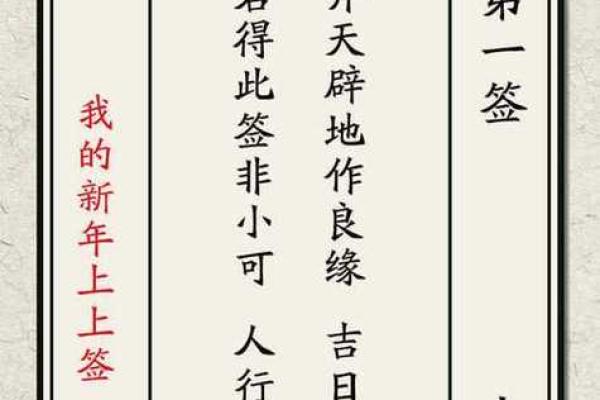 第一签
天辟地作良缘 吉日
得此签非小可 人行
我的新年上上签